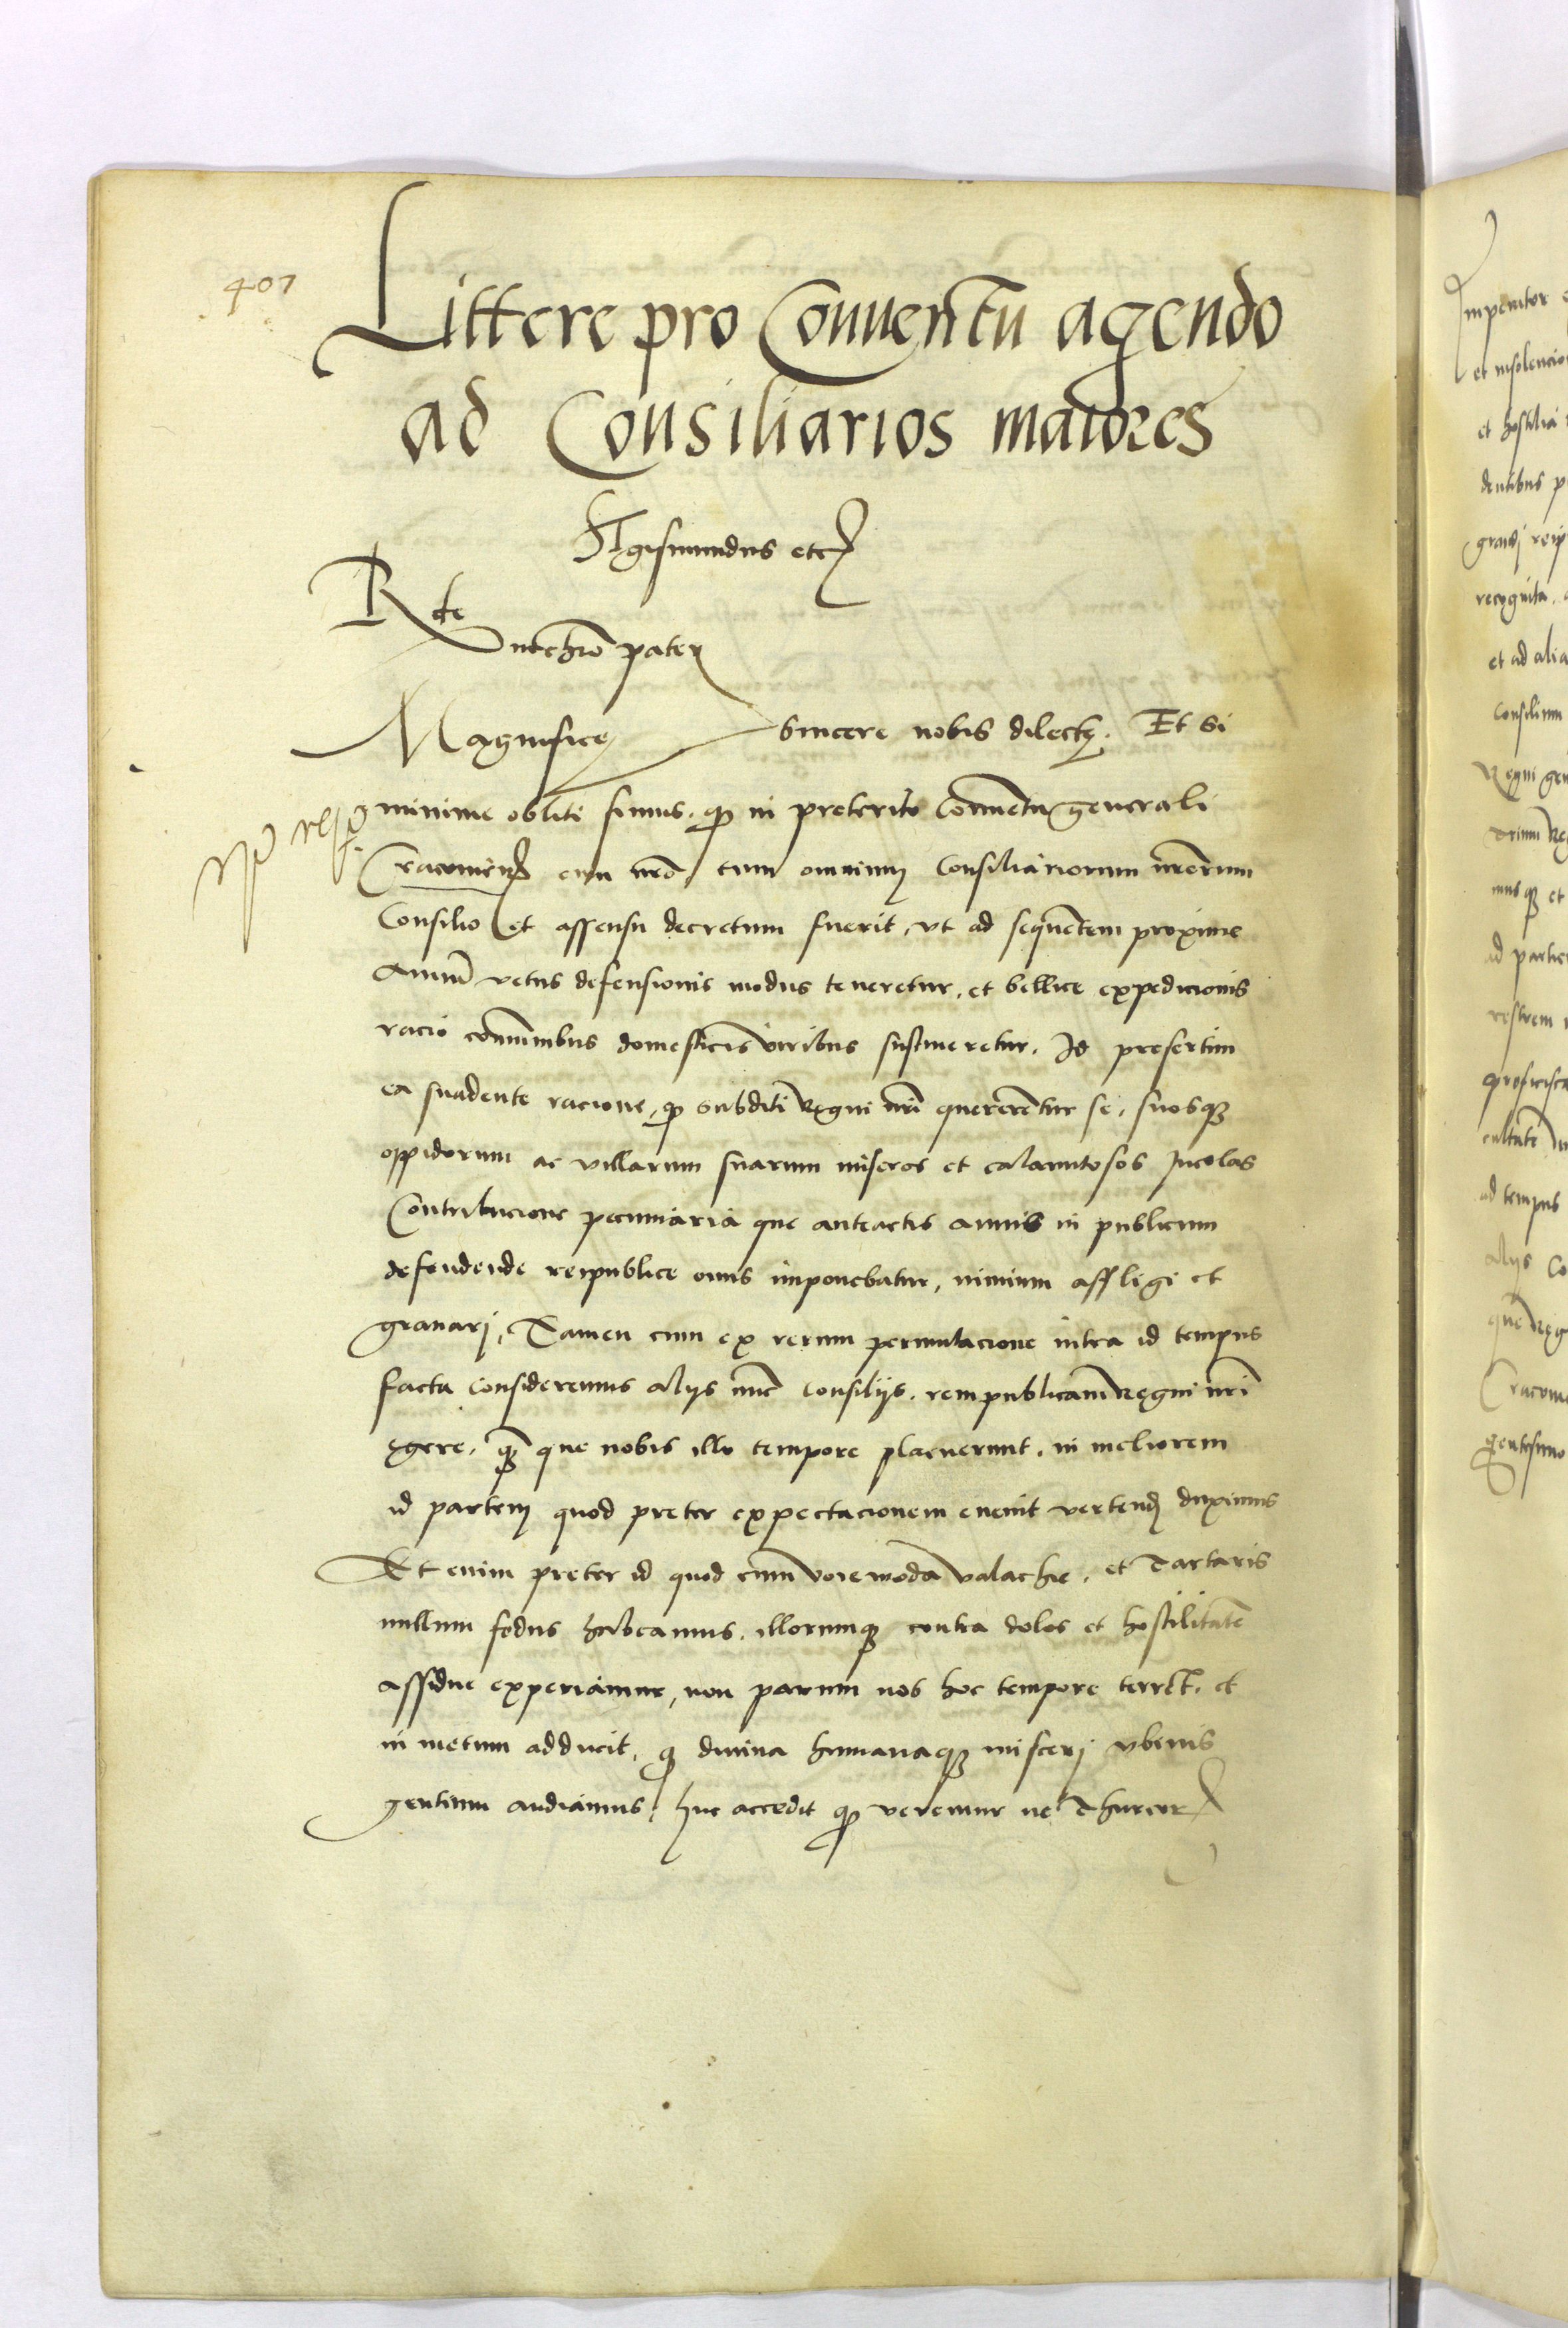 407
Littere pro Conuentu agendo
ad Consiliarios maiores
Sigismundus etc
Rde
In christo pater
Magnifice sincere nobis dilecte. Et si
minime obliti simus. quod in preterito Conuentu generali
Cracouien cum nro, tum omnium Consiliariorum nrorum
Consilio et assensu decretum fuerit, vt ad sequentem proxime
Annum vetus defensionis modus teneretur, et bellice expedicionis
racio communibus domesticis viribus sustineretur. Id presertim
ea suadente racione, quod subditi Regni nri quererentur se, suosque
oppidorum ac villarum suarum miseros et calamitosos Incolas
Contribucione pecuniaria que anteactis annis in publicum
defendende reipublice onus imponebatur, nimium affligi et
grauari, Tamen cum ex rerum permutacione intra id tempus
facta consideremus alijs nunc consilijs. rempublicam Regni nri
egere, quam que nobis illo tempore placuerunt. in meliorem
id partem quod preter expectacionem euenit vertend duximus
Et enim preter id quod cum voiewoda valachie. et Tartaris
nullum fedus habeamus. illorumque contra dolos et hostilitatem
assidue experiamur, non parum nos hoc tempore terret. et
in metum adducit, quod diuina humanaque misceri vbiuis
gentium audiamus, huc accedit quod veremur ne Thurcor